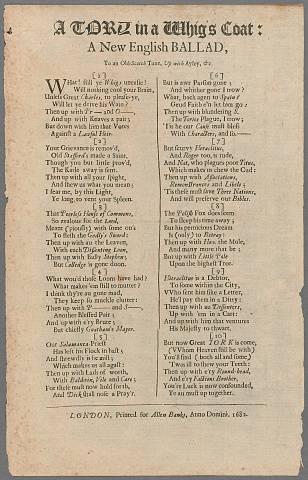 A TORY in a Whig's Coat:
A New English BALLAD,
To an Old Scotch Tune, Up with Ayley, &c.
[1]
WHat! still ye Whigs uneasie!
Will nothing cool your Brain,
Unless Great Charles, to please-ye,
Will let ye drive his Wain?
Then up with and O—,
And up with Knaves a pair;
But down with him that Votes
Against a Lawful Heir.
[2]
Your Grievance is remov'd,
Old Stafford's made a Saint,
Though you but little prov'd,
The Rascle away is sent.
Then up with all your spight,
And shew us what you mean;
I fear me, by this Light,
Ye long to vent your Spleen.
[3]
That Peerless House of Commons,
So zealous for the Lord,
Meant (piously) with some on's
To flesh the Godly's Sword:
Then up with au the Leaven,
With each Dissenting Loon,
Then up with Bully Stephen;
But Colledge is gone doun.
[4]
What woud those Loons have had?
What makes 'em still to mutter?
I think they're au gone mad,
They keep so muckle clutter:
Then up with and S—
Another Blessed Pair;
And up with e'ry Bruze;
But chiefly Gotham's Mayor.
[5]
Our Salamanca Priest
Has left his Flock in hast;
And sh
Which makes us all agast:
Then up with Lads of worth,
With Baldwin, Vile and Care;
For these must now hold forth,
And Dick shall nose a Pray'r.
[6]
But is awr Parson gone;
And whither gone I trow?
What, back agen to Spain?
Geud Faith e'n let him go;
Then up with blundering S.
The Tories Plague, I trow;
'Tis he our Cause must bless
With Characters, and so.—
[7]
But scurvy Heraclitus,
And Roger too, is rude,
And Nat, who plagues poor Titus,
Which makes us chew the Cud:
Then up with Association,
Remembrancers and Libels;
'Tis these must save Three Nations,
And will preserve our Bibles.
[8]
The Polish Fox does seem
To sleep his time away;
But his pernicious Dream
Is (only) to Betray:
Then up with Hex the Mole,
And many more that be;
But up with little Pole
Upon the highest Tree.
[9]
Heraclitus is a Debtor,
To some within the City,
Who sent him like a Letter,
He'l pay them in a Ditty:
Then up with au Disssenters,
Up with 'em in a Cart:
And up with him that ventures
His Majesty to thwart.
[10]
But now Great YORK is come,
(Whom Heaven still be with)
You'll find (both all and some)
'Twas ill to shew your Teeth:
Then up with e'ry Round-head,
And e'ry Factious Brother,
You're Luck is now confounded,
Ye au must up together.
LONDON, Printed for Allen Banks, Anno Domini, 1682.